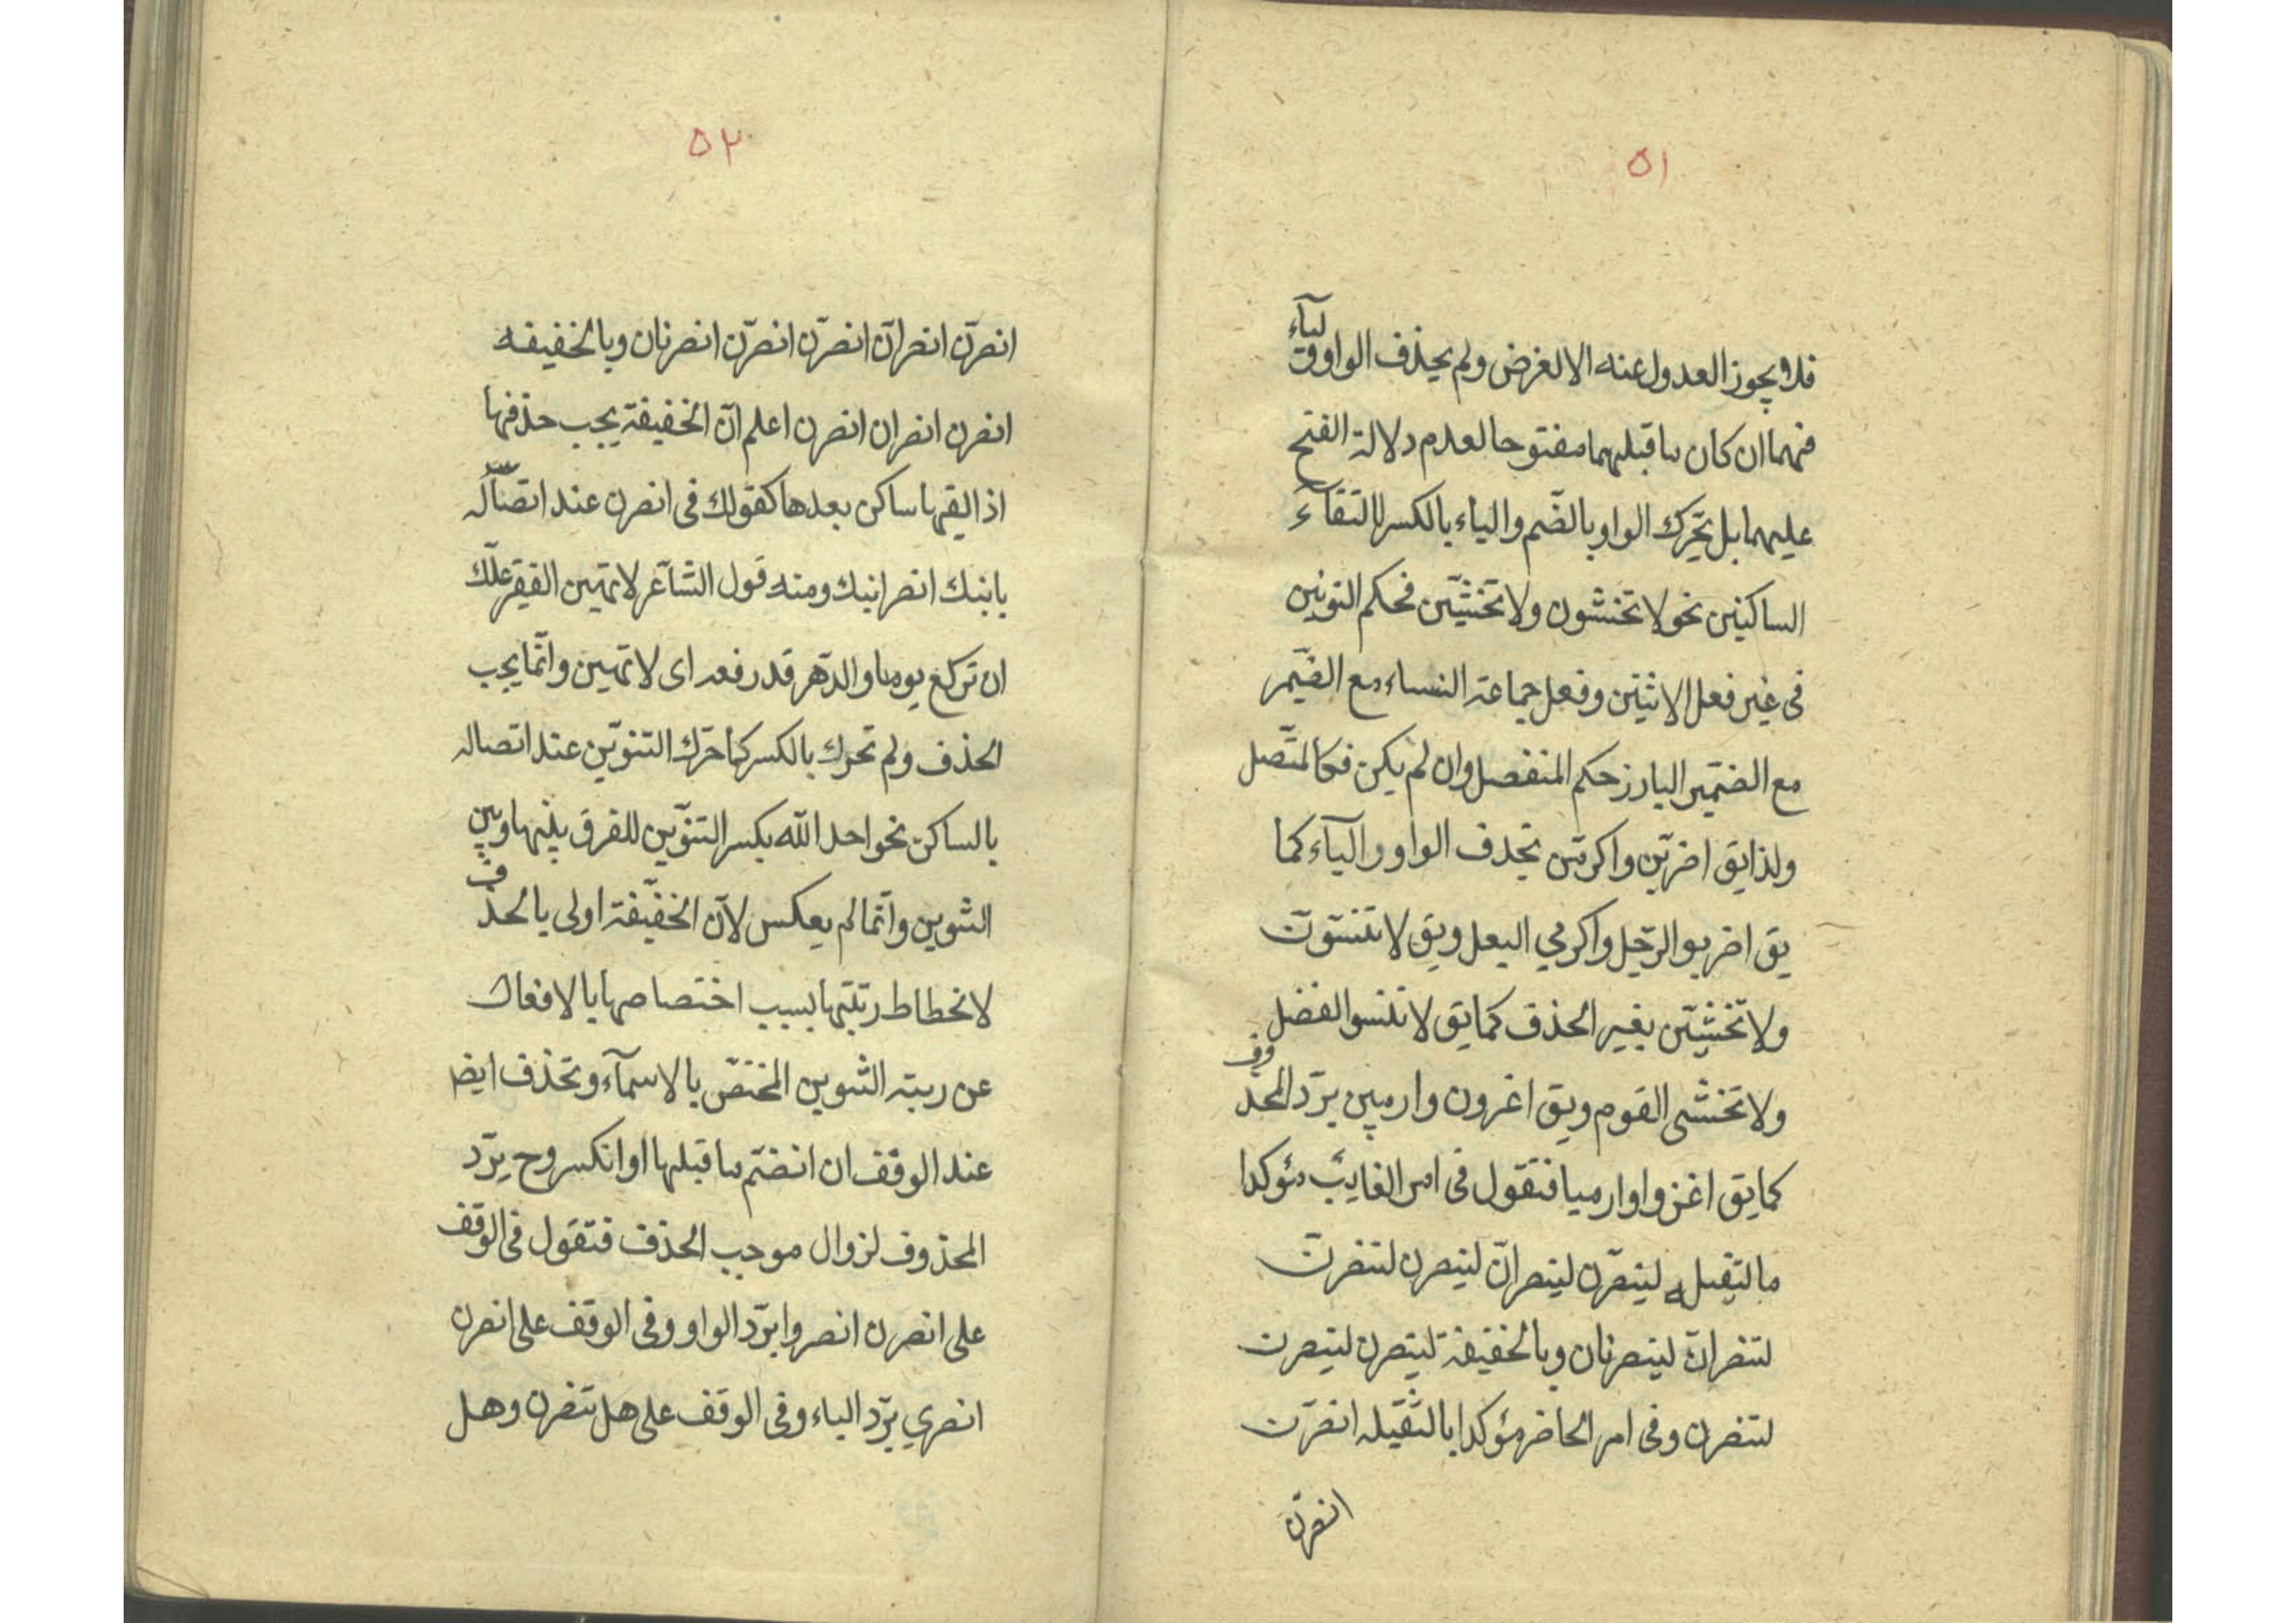 ٥١
فلا يجوز العدول عنه الا لغرض ولم يحذف الواو و الياء
فيهما ان كان ما قبلهما مفتوحا لعدم دلالة الفتح
عليهما بل تحرك الواو بالضّم والياء بالكسر لالتقآء
الساكنين نحو لا تخشون ولا تخشيّن فحكم النونين
فى غير فعل الاثنين وفعل جماعة النساء مع الضّمير
مع الضّمير البارز حكم المنفصل وان لم يكن فكالمتّصل
ولذا يق اضربّن واكرمّن بحذف الواو والياء كما
يق اضربوا الرّجل واكرمي البعل ويق لا تنسّوّن
ولا تخشيّن بغير الحذف كما يق لا تنسو الفضل
ولا تخشى القوم ويق اغزون وارمين بردّ المحذوف
كما يق اغزوا وارميا فتقول فى امر الغايب مؤكدا
مالثقيله لينصرّن لينصرانّ لينصرن لتنصرنّ
لتنصرانّ لينصرنان وبالخفيفة لينصرن لينصرن
لتنصرن وفى امر الحاضر مؤكدا بالثّقيله انصرّن
انصرنّ
٥٢
انصرنّ انصرانّ انصرّن انصرّن انصرنان وبالخفيفه
انصرن انصران انصرن اعلم انّ الخفيفة يجب حذفها
اذ القيها ساكن بعدها كقولك فى انصرن عند اتّصاله
بابنك انصر ابنك ومنه قول الشاعر لا تهين الفقير علّك
ان تركع يوما والدّهر قد رفعه اى لا تهين وانّما يجب
الحذف ولم تحرك بالكسر كما حرّك التنوين عند اتصاله
بالساكن نحو احد الله بكسر التنوّين للفرق بينها وبين
التنوين وانّما لم يعكس لانّ الخفيّفة اولى بالحذف
لانحطاط رتبتها بسبب اختصاصها بالافعال
عن رتبة التنوين المختصّ بالاسمآء وتحذف ايض
عند الوقف ان انضّم ما قبلها او انكسر وح يردّ
المحذوف لزوال موجب الحذف فتقول فى الوقف
على انصرن انصروا بردّ الواو وفى الوقف على انصرن
انصري بردّ الياء وفى الوقف على هل تنصرن وهل